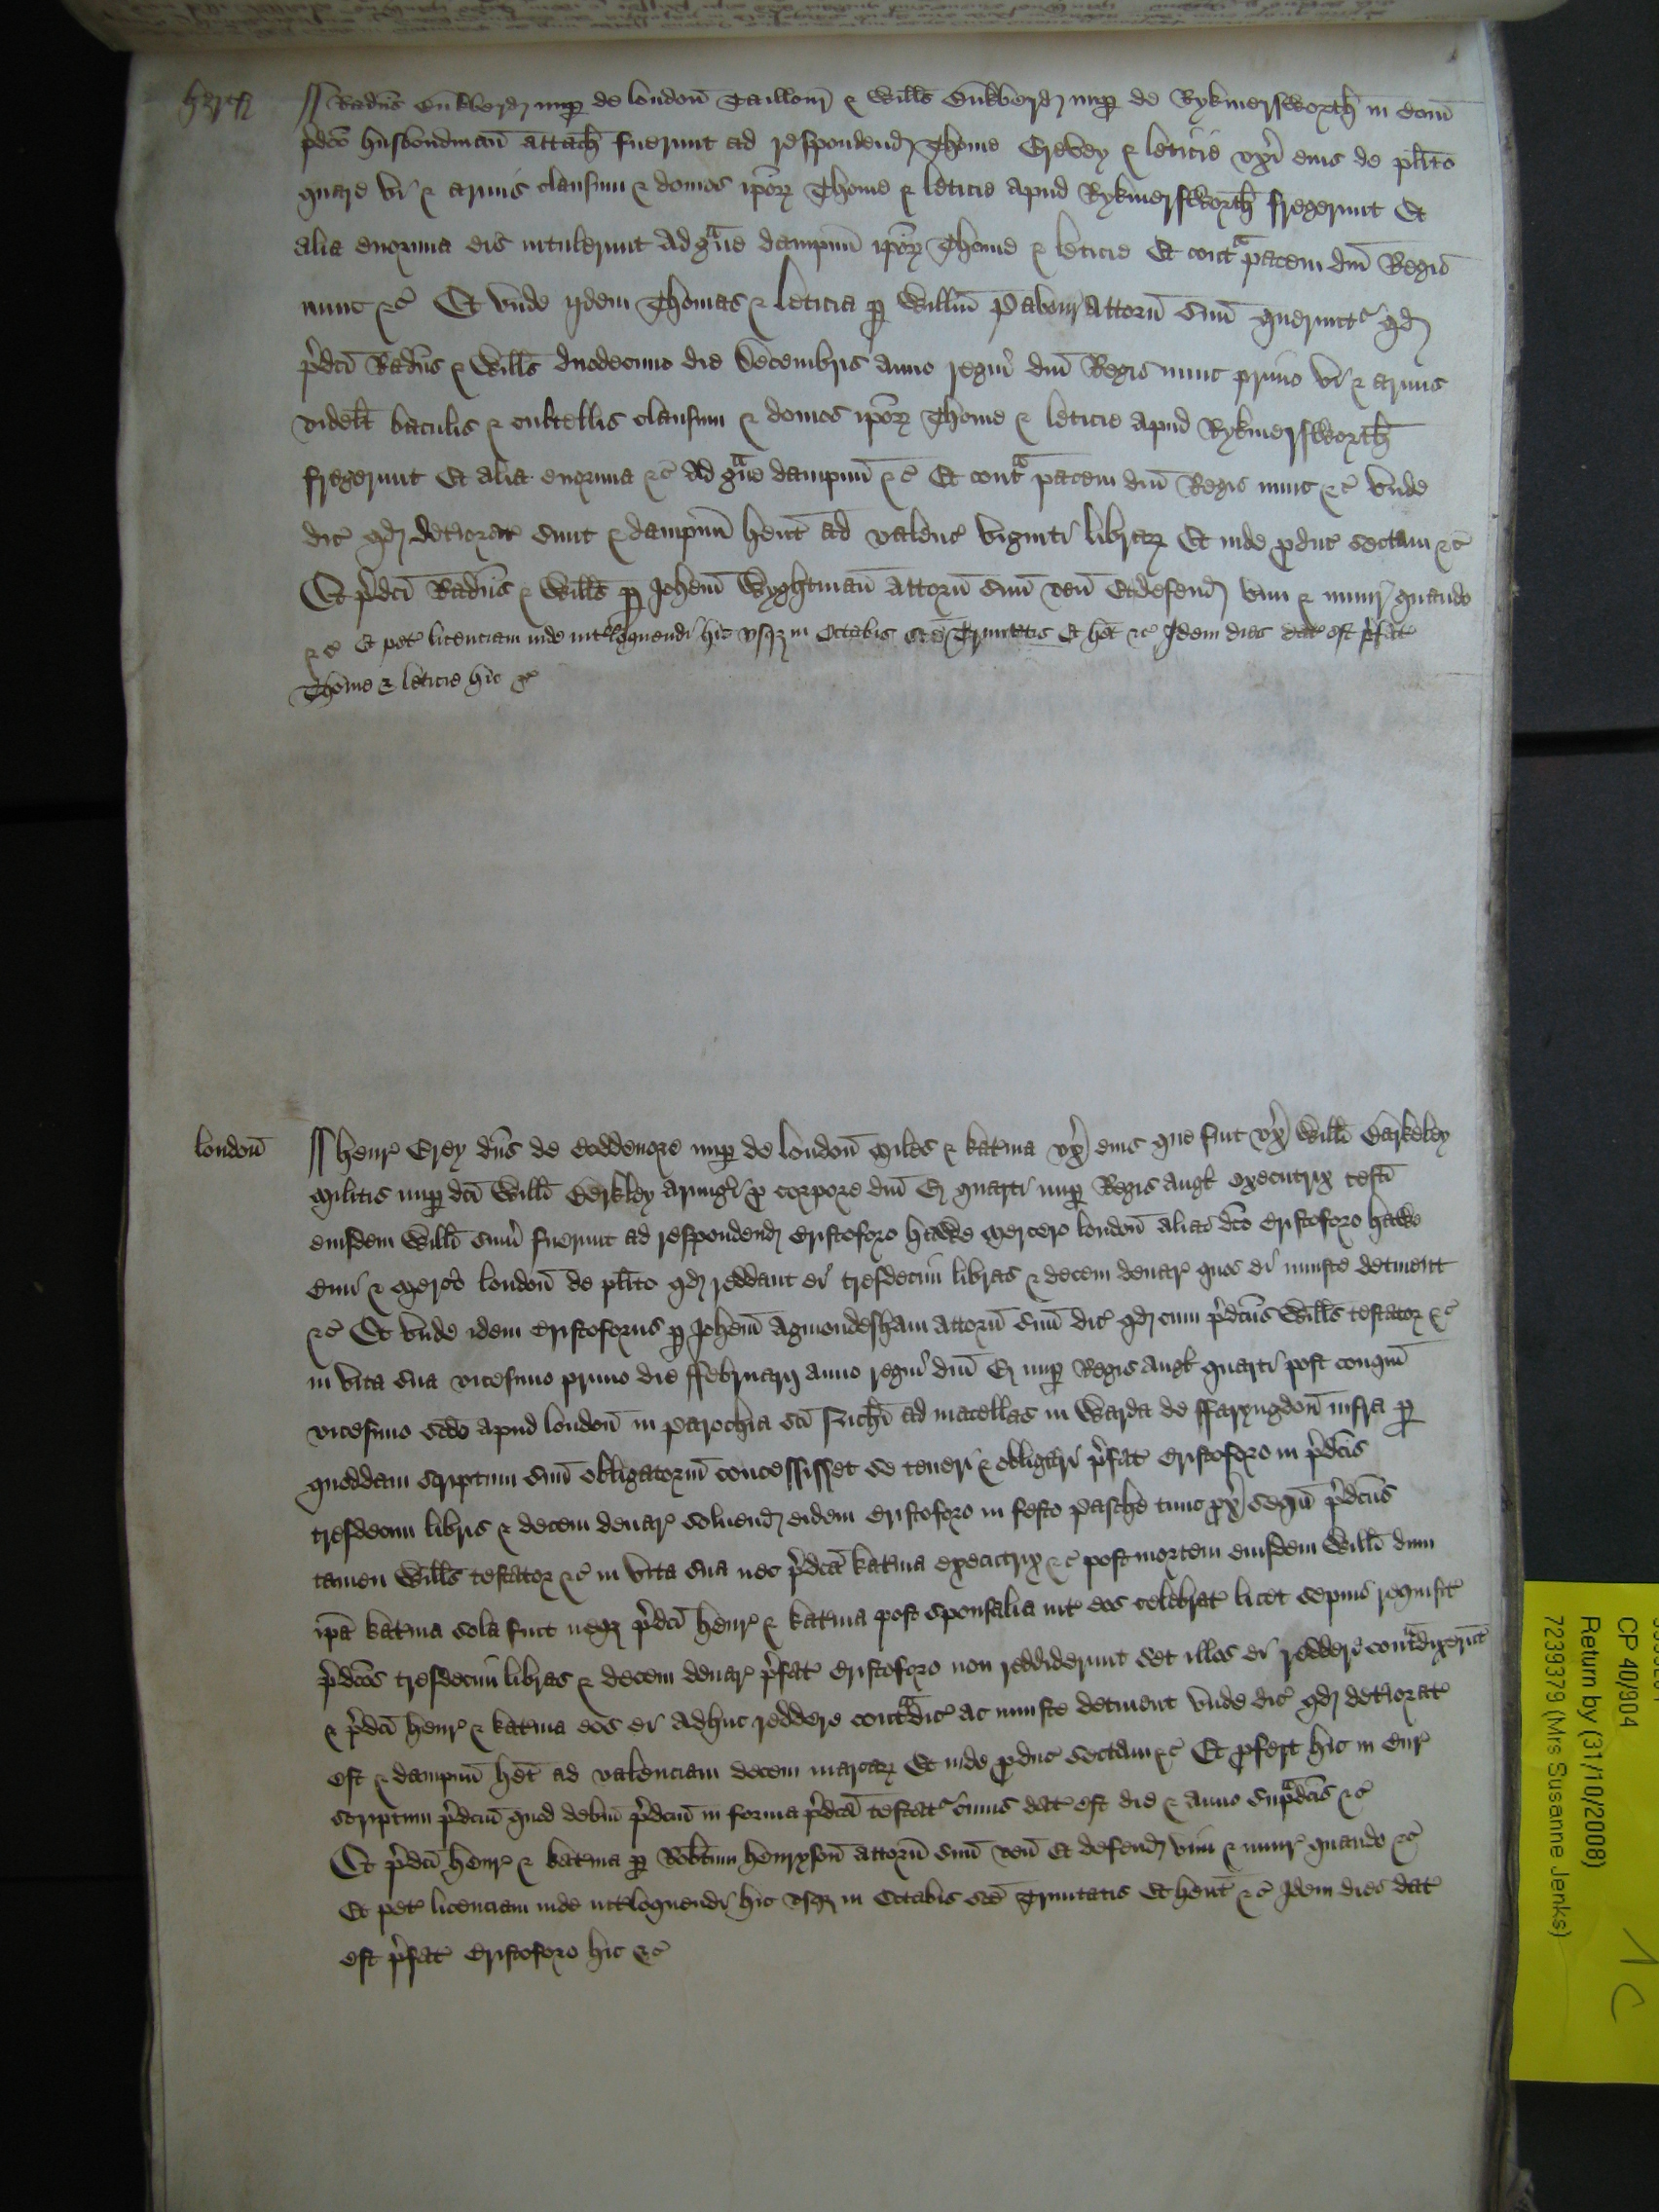 hertf
ss Radūs Dukberdꝭ nuꝑ de londoñ Taillourꝭ & Wills̄ Dukberdꝭ nuꝑ de Rykmersworth̄ in Com̄
p̉dc̄o husbondman̄ attach̄ fuerunt ad respondendꝭ Thome Crevey & leticie vx̉i eius de pl̄ito
quare vi & armis clausum & domos ip̄oꝝ Thome & leticie apud Rykmersworth̄ fregerunt Et
alia enormia eis intulerunt Ad gᵃue dampnū ip̄oꝝ Thome & leticie Et contᵃ pacem dn̄i Regis
nunc &c̄ Et vnde ijdem Thomas & leticia ꝑ Willm̄ Pabour Attorn̄ suū querunt᷑ qdꝭ
p̉dc̄i Radūs & Wills̄ duodecimo die Decembris anno regni dn̄i Regis nunc primo vi & armis
videlt̄ baculis & cultellis clausum & domos ip̄oꝝ Thome & leticie apud Rykmersworth̄
fregerunt Et alia enormia &c̄ Ad gᵃue dampnū &c̄ Et contᵃ pacem dn̄i Regis nunc &c̄ vnde
dic̄ qdꝭ deteriorat᷑ sunt & dampnū hent̄ ad valenc᷑ viginti libraꝝ Et inde ꝓduc᷑ sectam &c̄
Et p̉dc̄i Radūs & Wills̄ ꝑ Joh̄em Wyghtman̄ Attorn̄ suū ven̄ Et defendꝭ vim & iniurꝭ quando
&c̄ Et pet᷑ licenciam inde int᷑loquendi hic vsqꝫ in Octabis sc̄e Trinitatis Et hēt &c̄ Idem dies dat᷑ est p̉fat᷑
Thome & leticie hic &c̄
londoñ
ss henr᷑ Grey dn̄s de Coddenore nuꝑ de londoñ Miles & kat̉ina vx̉ eius que fuit vx̉ Willī Berkeley
Militis nuꝑ dc̄i Willī Berkley Armigꝭi ꝓ corpore dn̄i E quarti nuꝑ Regis Angl̄ executrix testī
eiusdem Willī sum̉ fuerunt ad respondendꝭ Cristoforo hawe Mercero londoñ alias dc̄o Cristoforo hawe
Ciui & Mercero londoñ de pl̄ito qdꝭ reddant ei tresdecim libras & decem denar᷑ quos ei iniuste detinent
&c̄ Et vnde idem Cristoforus ꝑ Joh̄em Agmondesham attorn̄ suū dic̄ qdꝭ cum p̉dc̄us Wills̄ testator &c̄
in vita sua vicesimo primo die ffebruarij anno regni dn̄i E nuꝑ Regis Angl̄ quarti post conqm̄
vicesimo scd̄o apud londoñ in parochia sc̄i Nich̄i ad macellas in Warda de ffaryngdon̄ infra ꝑ
quoddam scriptum suū obligatoriū concessisset se teneri & obligari p̉fat᷑ Cristoforo in p̉dc̄is
tresdecim libris & decem denar᷑ soluendꝭ eidem Cristoforo in festo Pasche tunc ꝓx̉ sequn̄ p̉dc̄us
tamen Wills̄ testator &c̄ in vita sua nec p̉dc̄a kat̉ina executrix &c̄ post mortem eiusdem Willī dum
ip̄a kat̉ina sola fuit neqꝫ p̉dc̄i henr᷑ & kat̉ina post sponsalia int᷑ eos celebrat᷑ licet sepius requisit᷑
p̉dc̄as tresdecim libras & decem denar᷑ p̉fat᷑ Cristoforo non reddiderunt set illos ei reddere contᵃdixerūt
& p̉dc̄i henr᷑ & kat̉ina eos ei adhuc reddere contᵃdic᷑ ac iniuste detinent vnde dic̄ qdꝭ deteriorat᷑
est & dampnū hēt ad valenciam decem marcaꝝ Et inde ꝓduc᷑ sectam &c̄ Et ꝓfert hic in Cur᷑
scriptum p̉dc̄um quod debitū p̉dc̄um in forma p̉dc̄a testat᷑ cuius dat᷑ est die & anno supᵃdc̄is &c̄
Et p̉dc̄i henr᷑ & kat̉ina ꝑ Rob̄tum henryson̄ attorn̄ suū ven̄ Et defendꝭ vim & iniur᷑ quando &c̄
Et pet᷑ licenciam inde int᷑loquendi hic vsqꝫ in Octabis sc̄e Trinitatis Et hent̄ &c̄ Idem dies dat᷑
est p̉fat᷑ Cristoforo hic &c̄
CP 40/904
Return by (31/10/2008)
7239379 (Mrs Susanne Jenks)